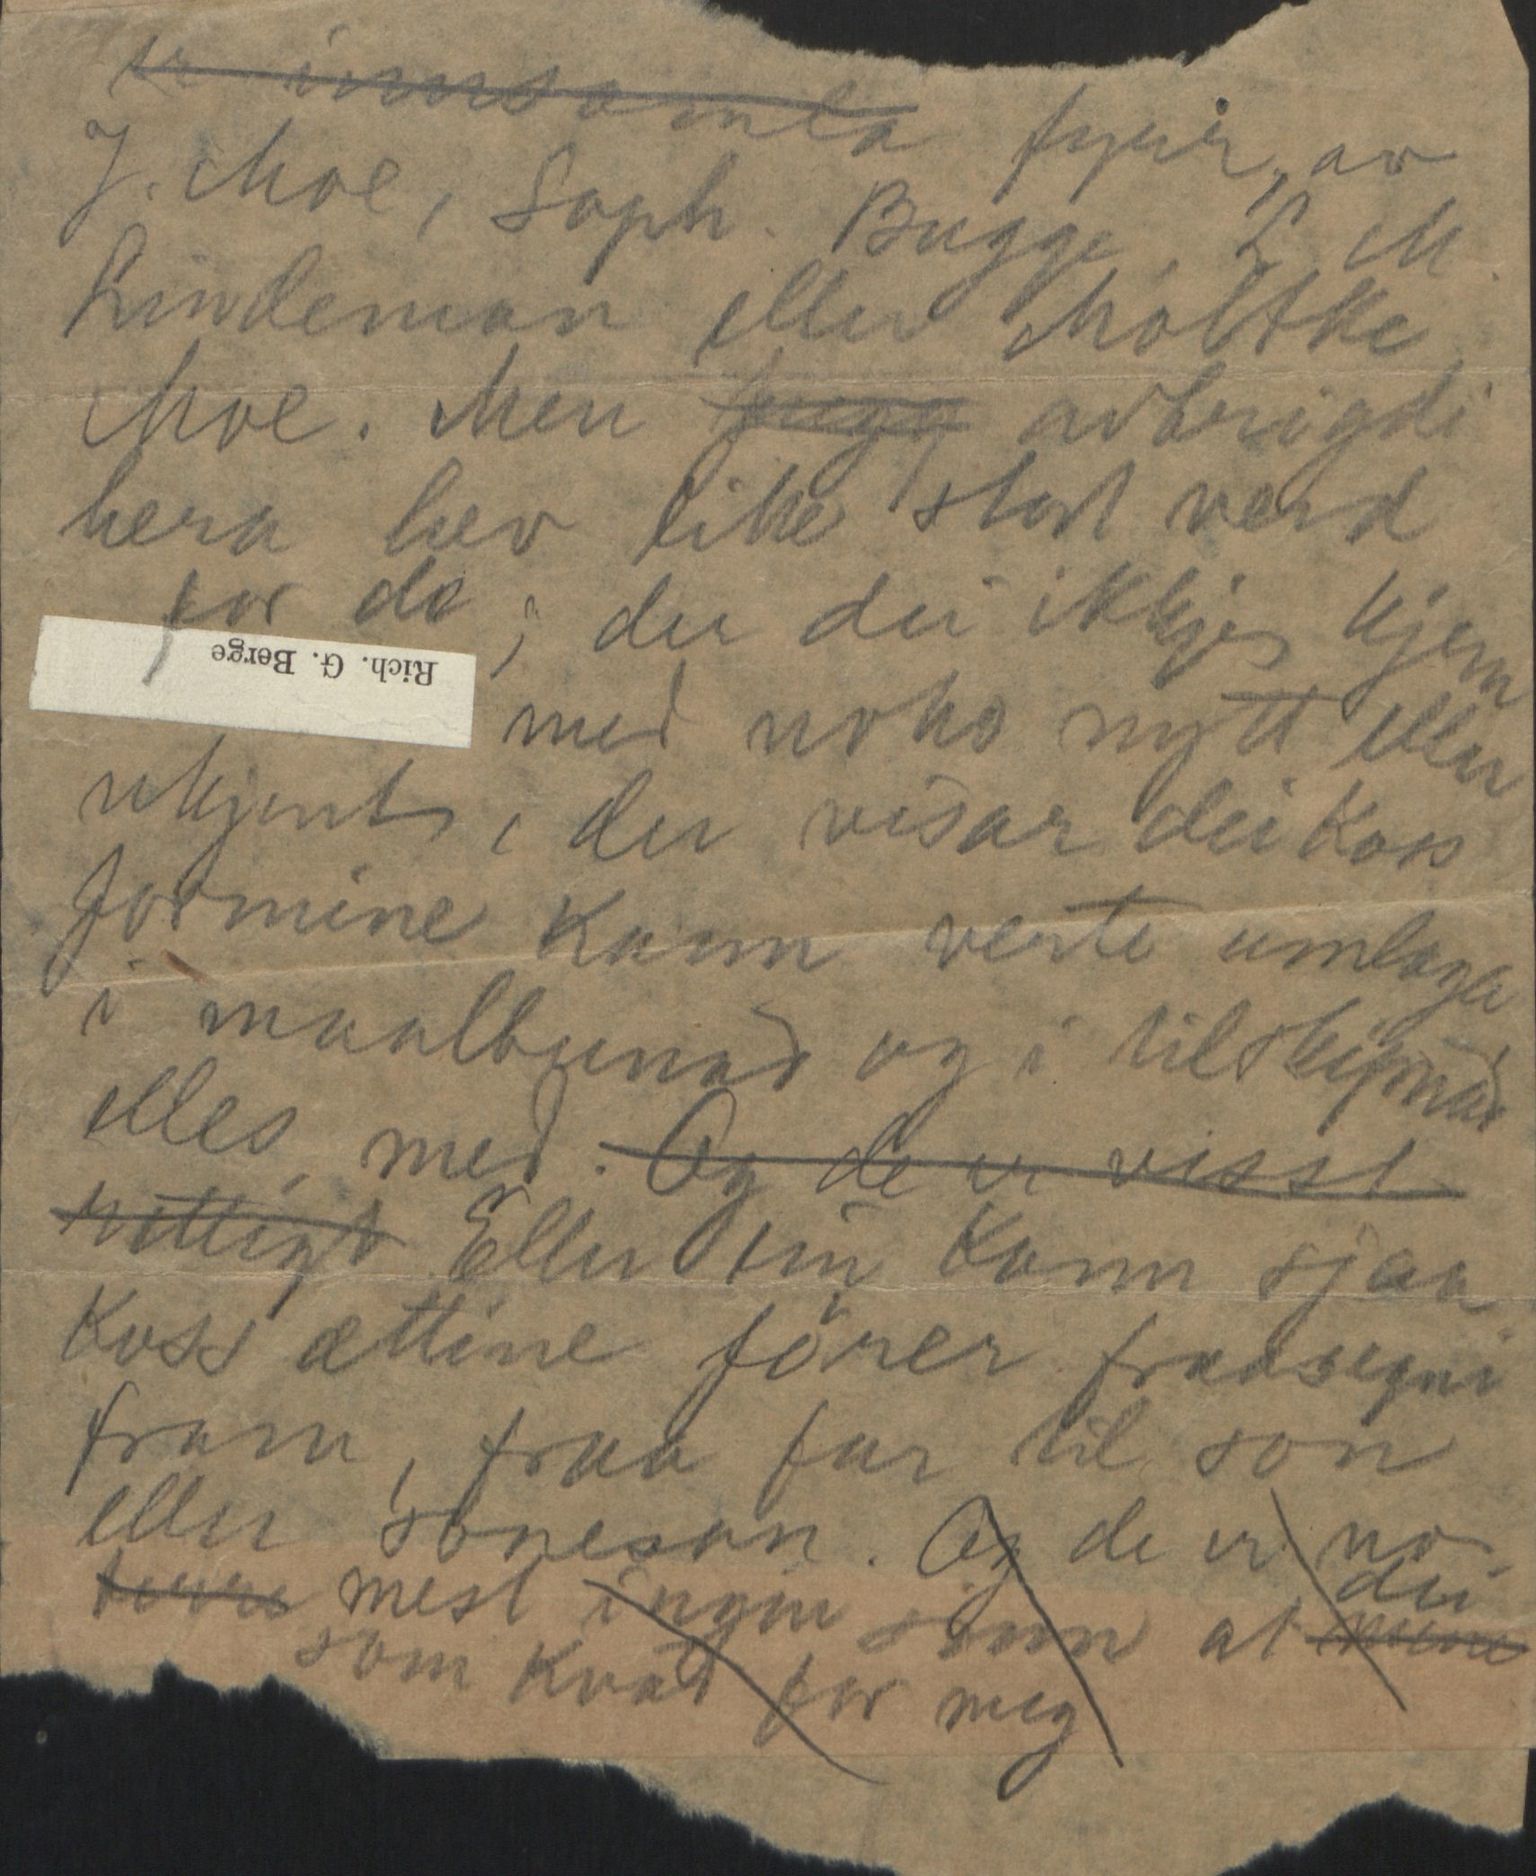 er innsamla fyrr, av
J. Moe, Soph. Bugge, L M.
Lindeman eller Moltke
Moe. Men avbrigdi
hera hev like stort verd
for de; der dei ikkje kjem
Rich. G. Berge
med noko nytt eller
ukjent, der visar dei koss
formine kann verte umlaga
i maalbunad og i tilskipnad
elles, med. Og de er visst
rettigt Eller ein kann sjaa
koss ættine fører fraasegni
fram, fraa far til son
eller soneson. Og de er no
mest ingin sinn at dei
som kvad for meg